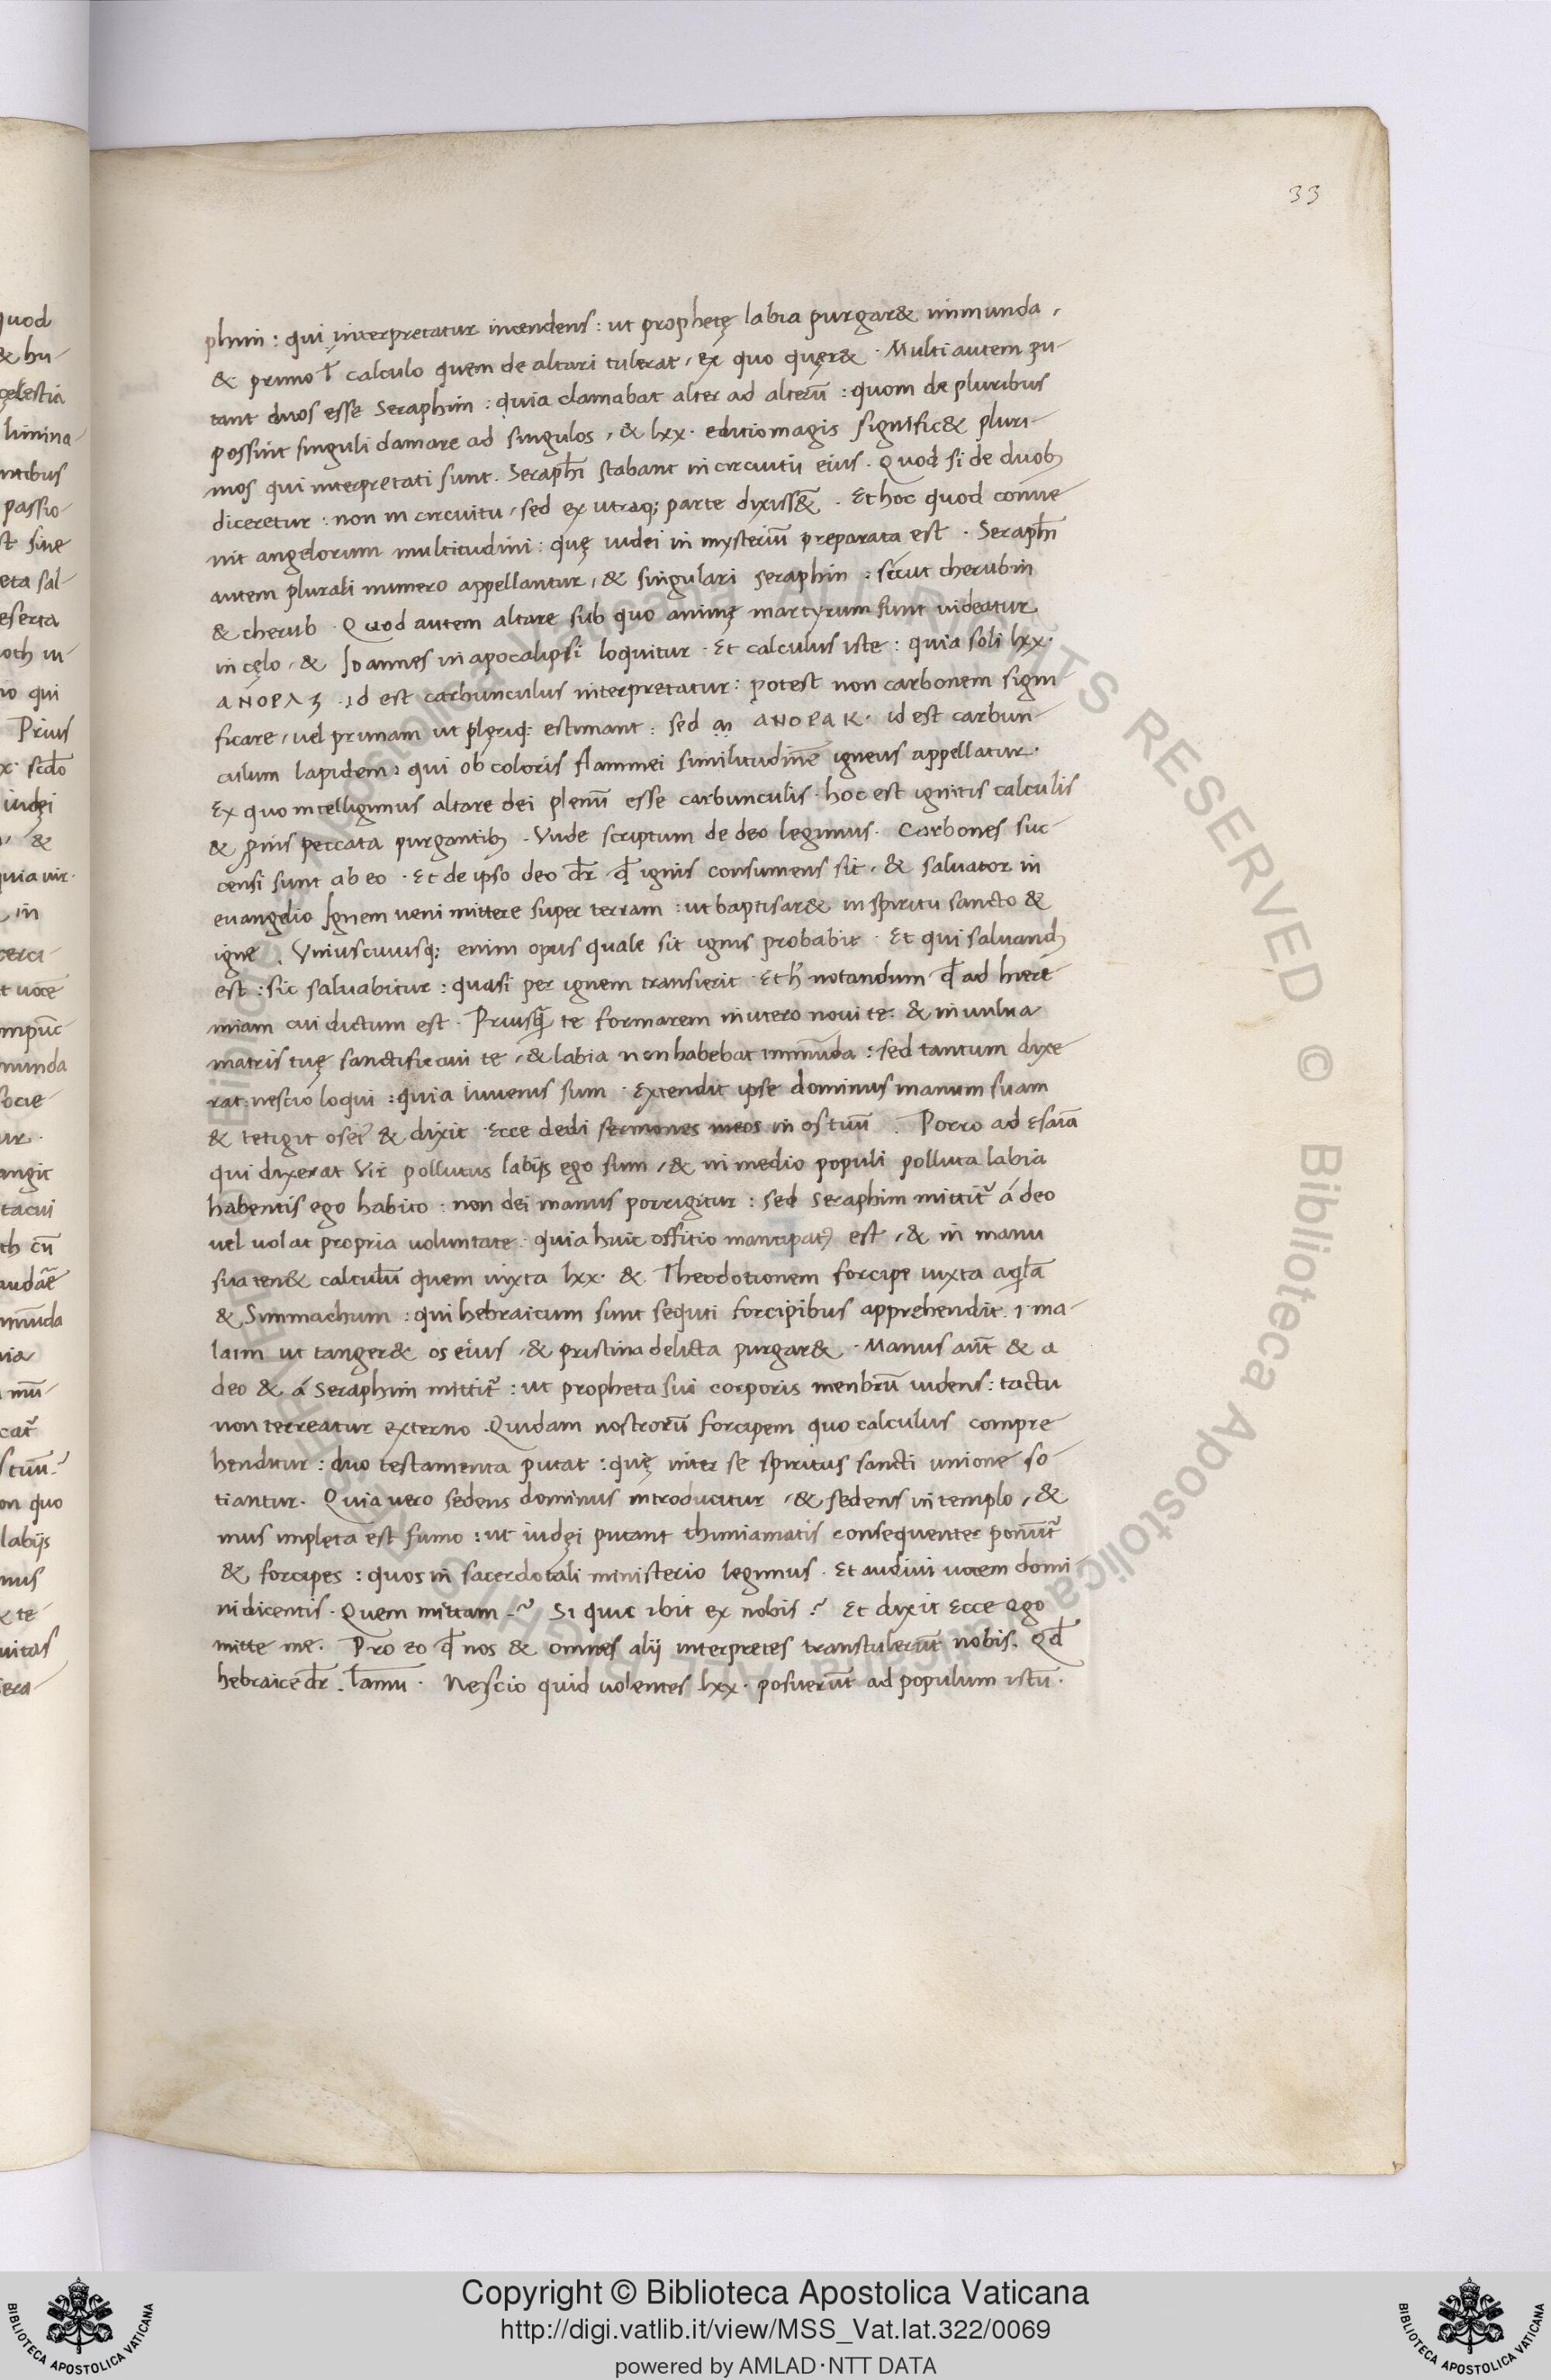 33
phim : qui interpretatur incendens : ut prophetę labia purgar& inmunda ,
& primo ł calculo quem de altari tulerat , ex quo quęr& · Multi autem pu-
tant duos esse Seraphim : quia clamabat alter ad alterū : quom de pluribus
possint singuli clamare ad singulos , & lxx · editio magis signific& pluri-
mos qui interpretati sunt . Seraphī stabant in circuitu eius . Quod si de duob;
diceretur : non in circuitu , sed ex utraq; parte dixiss& . Et hoc quod conue
nit angelorum multitudini : quę iudei in mysteriū preparata est · Seraphī
autem plurali numero appellantur , & singulari seraphin : sicut cherubin
& cherub · Quod autem altare sub quo animę martyrum sunt uideatur
in cęlo , & Ioannes in apocalipsi loquitur · Et calculus iste : quia soli lxx ·
ANOPΛZ . id est carbunculus interpretatur : potest non carbonem signi
ficare , uel prunam ut plęriq; estimant : sed ANOPAK · id est carbun-
culum lapidem : qui ob coloris flammei similitudinē igneus appellatur ·
Ex quo intelligimus altare dei plenū esse carbunculis · hoc est ignitis calculis
& pinis peccata purgantib; . Vnde scriptum de deo legimus . Carbones suc-
censi sunt ab eo · Et de ipso deo dr̄ qd̄ ignis consumens sit , & saluator in
euangelio Ignem ueni mittere super terram : ut baptisar& in spiritu sancto &
igne . Vniuscuiusq; enim opus quale sit ignis probabit · Et qui saluand;
est : sic saluabitur : quasi per ignem transierit · Et h' notandum qd̄ ad hiere
miam cui dictum est . Priusq̄ te formarem in utero noui te . & in uulua
matris tuę sanctificaui te , & labia non habebat inmūda : sed tantum dixe
rat : nescio loqui : quia iuuenis sum · Extendit ipse dominus manum suam
& tetigit os ei' & dixit · Ecce dedi sermones meos in os tuū . Porro ad Esaiā
qui dixerat Vir pollutus labijs ego sum , & in medio populi polluta labia
habentis ego habito : non dei manus porrigitur : sed seraphim mittit̃ á deo
uel uolat propria uoluntate : quia huic offitio mancipat' est , & in manu
sua ten& calculū quem iuxta lxx · & Theodotionem forcipe iuxta aqlā
& Simmachum : qui hebraicum sunt sequti forcipibus apprehendit . 1 · ma-
laim ut tanger& os eius , & pristina delicta purgar& · Manus aūt & a
deo & á Seraphim mittit̃ : ut propheta sui corporis menbrū uidens : tactu
non terreatur externo . Quidam nostrorū forcipem quo calculus compre
henditur : duo testamenta putat : quę inter se spiritus sancti unione so-
tiantur . Quia uero sedens dominus introducitur , & sedens in templo , &
mus impleta est fumo : ut iudęi putant thimiamatis consequenter ponūt̃
& forcipes : quos in sacerdotali ministerio legimus · Et audiui uocem domi
ni dicentis · Quem mittam ·? Si quit ibit ex nobis ·? Et dixit Ecce ego
mitte me . Pro eo qd̄ nos & omnes alij interpretes transtulerūt nobis . Qd̄
hebraice dr̄ . lamū · Nescio quid uolentes lxx · posuerūt ad populum istū ·
Copyright © Biblioteca Apostolica Vaticana
http://digi.vatlib.it/view/MSS_Vat.lat.322/0069
powered by AMLAD·NTT DATA